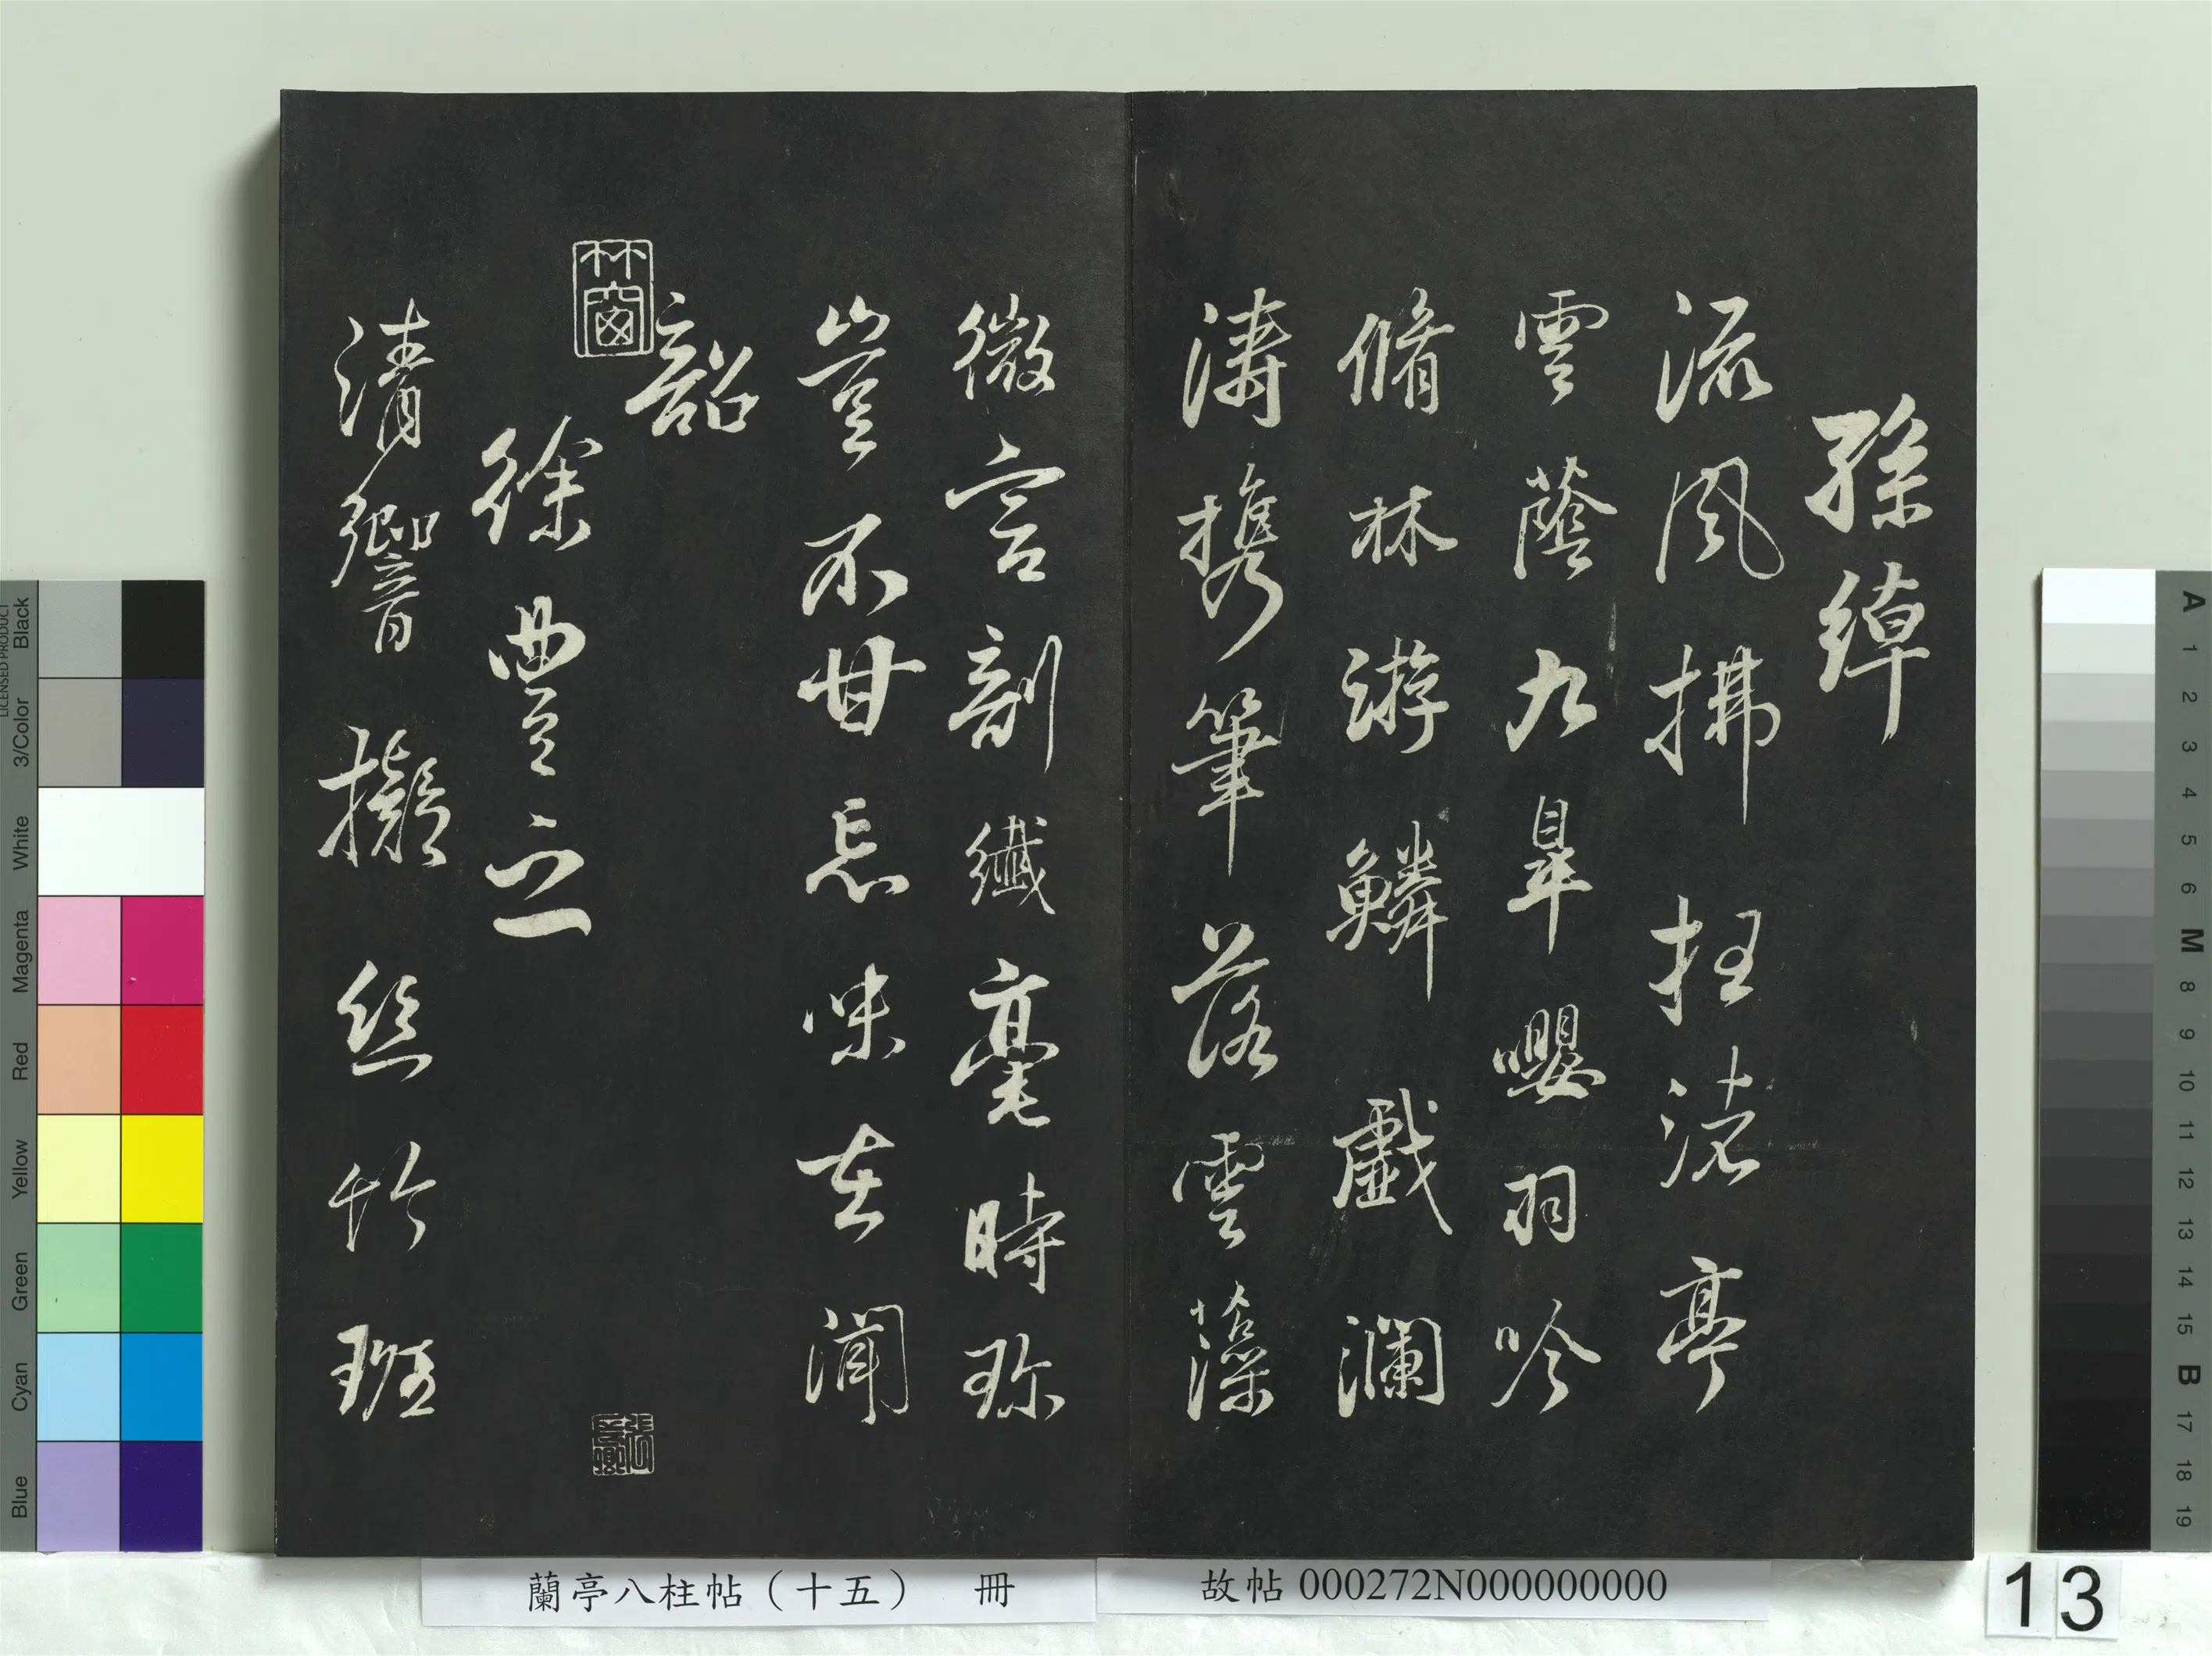 孫綽
流風拂枉渚亭
雲蔭九皐嚶羽吟
脩林游鱗戲瀾
濤携筆落雲藻
微言剖纖毫時珎
豈不甘忘味在聞
韶
徐豐之
清響擬絲竹班
林窗
蘭亭八柱帖（十五） 冊
故帖 000272N000000000
13
Black
3/Color
White
Magenta
Red
Yellow
Green
Cyan
Blue
LICENSED PRODUCT
A
1
2
3
4
5
6
M
8
9
10
11
12
13
14
15
B
17
18
19